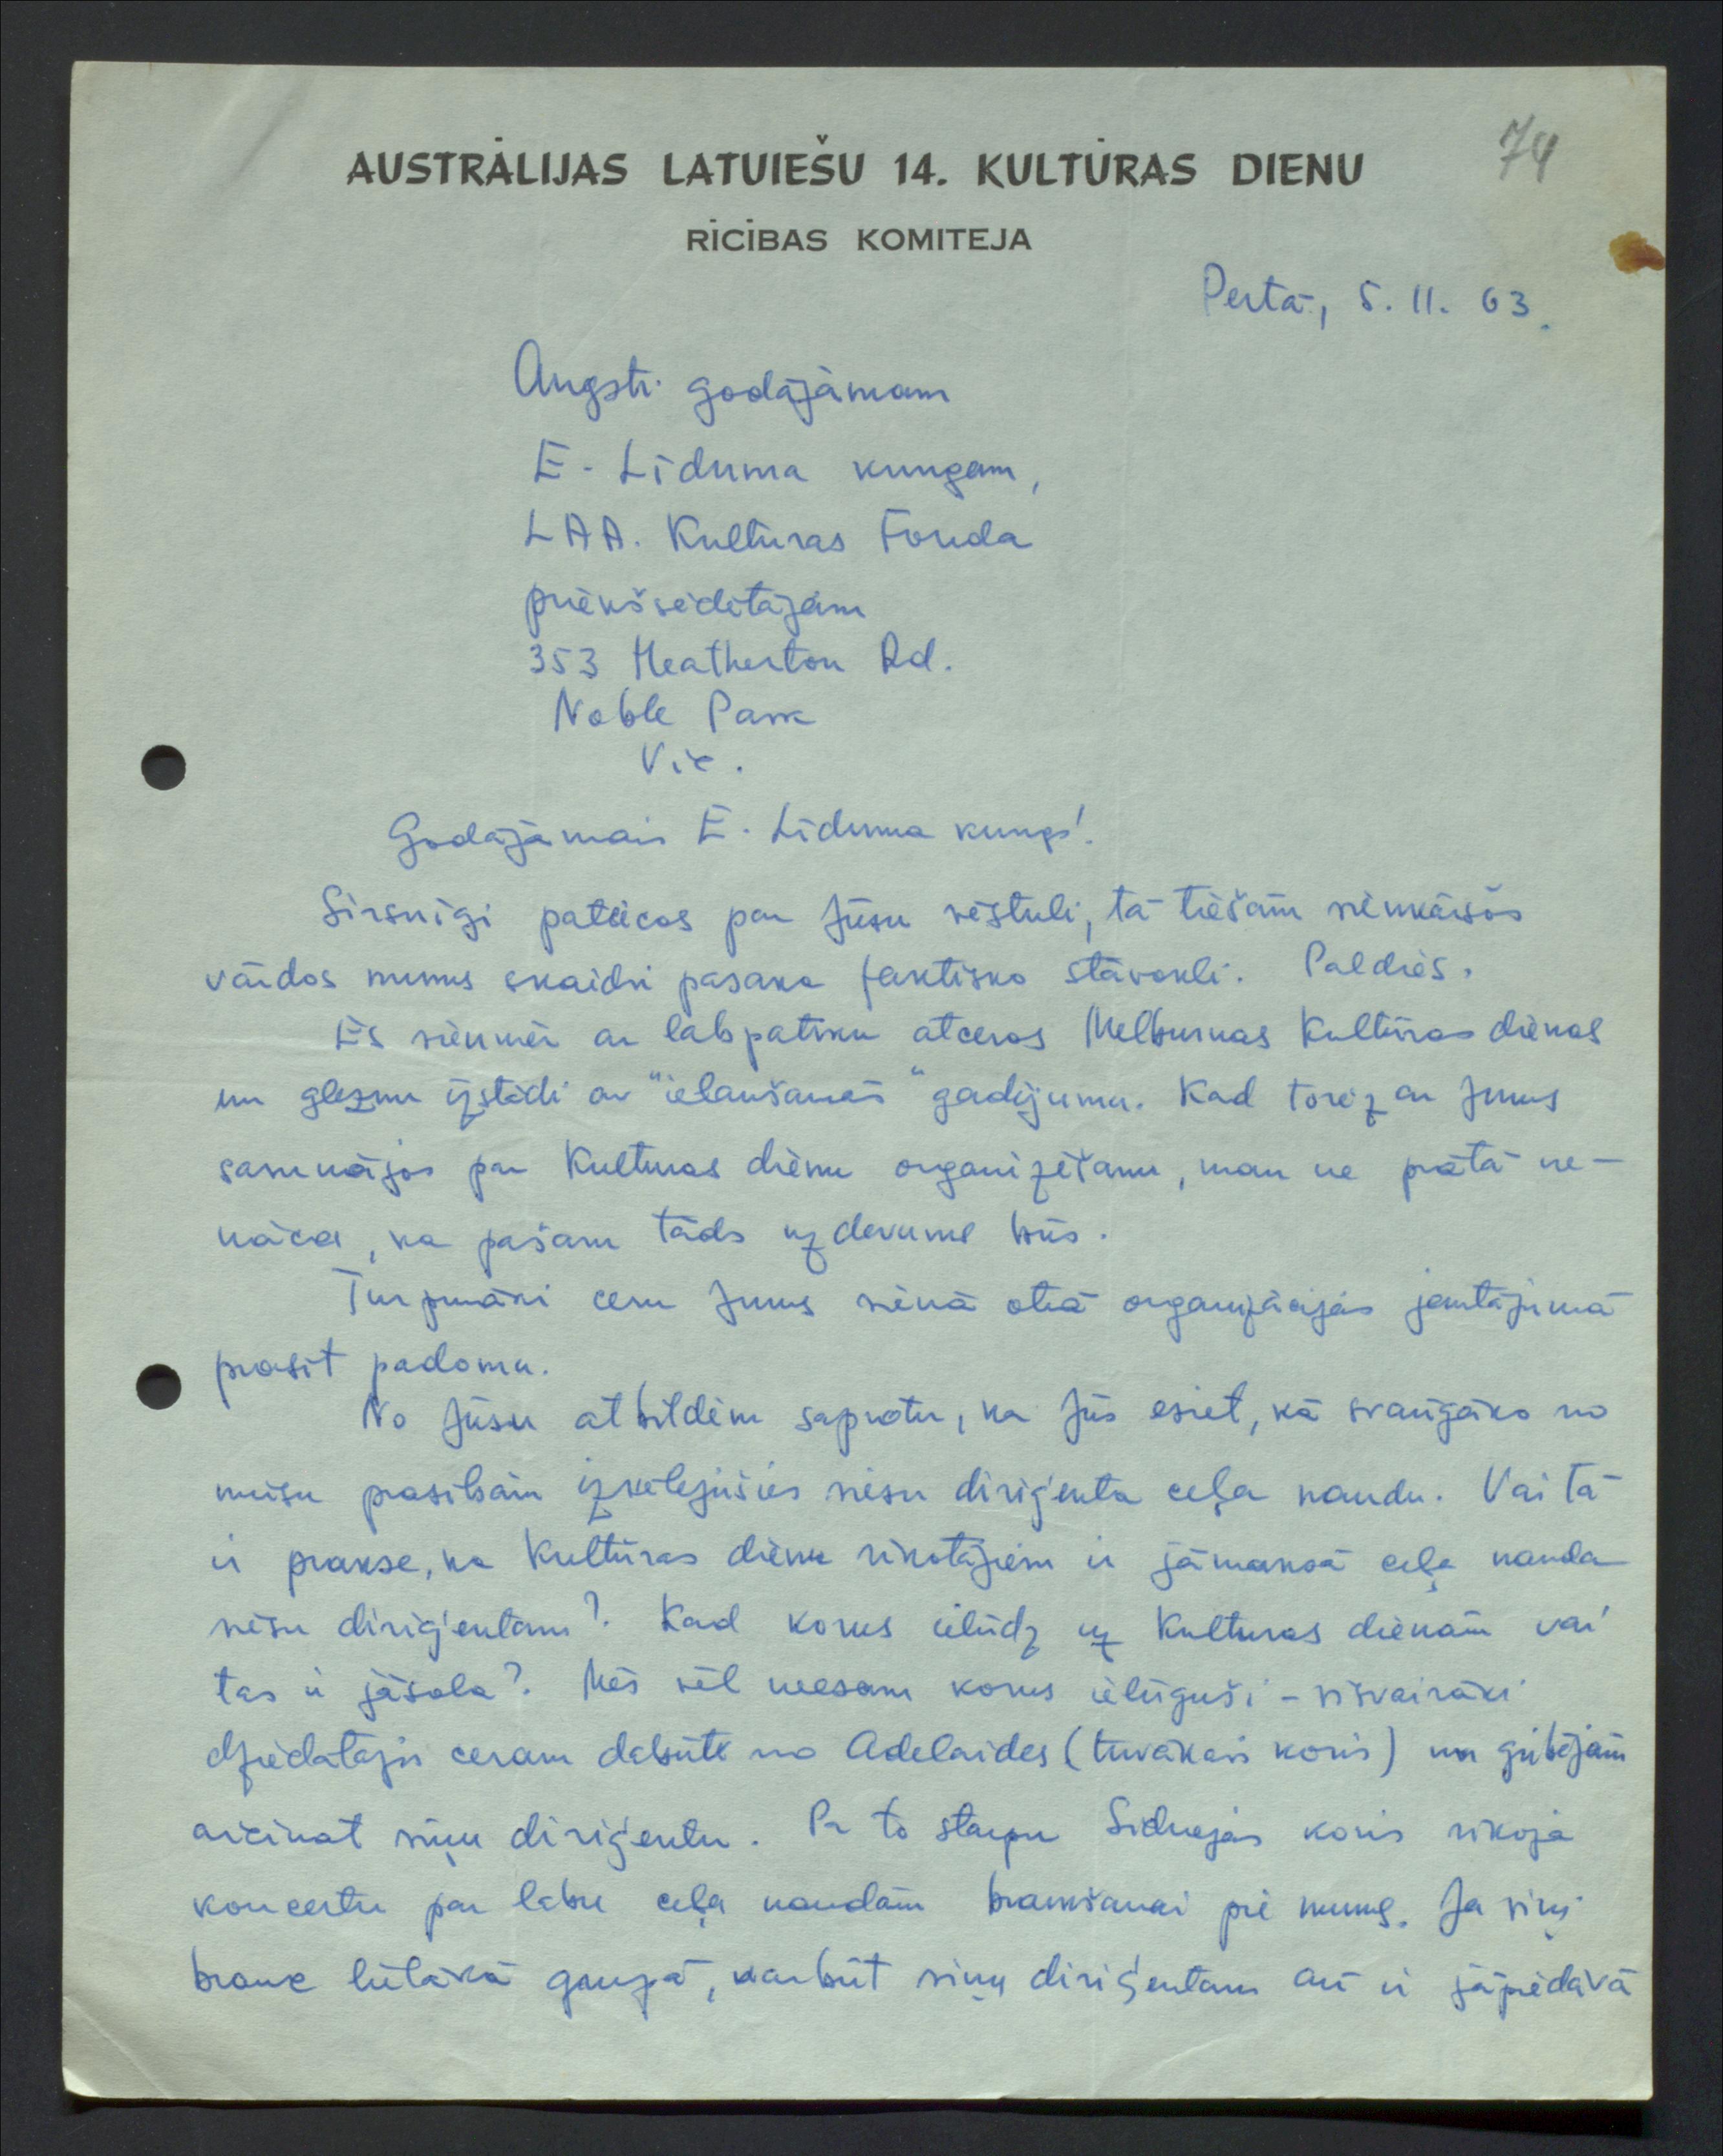 74
AUSTRĀLIJAS LATVIEŠU 14. KULTŪRAS DIENU
RĪCĪBAS KOMITEJA
Pertā, 5. 11. 63.
Augsti godājamam
E. Līduma kungam,
LAA. Kultūras Fonda
priekšsēdētājam
353 Heatherton Rd.
Noble Park
Vic.
Godājamais E. Līduma kungs!
Sirsnīgi pateicos par Jūsu vēstuli, tā tiešām vienkāršos
vārdos mums skaidri pasaka faktisko stāvokli. Paldies.
Es vienmēr ar labpatiku atceros Melburnas Kultūras dienas
un gleznu izstādi ar "ielaušanās" gadījumu. Kad toreiz ar Jums
sarunājos par Kulturas dienu organizēšanu, man ne prātā ne-
nāca, ka pašam tāds uzdevums būs.
Turpmāki ceru Jums vienā otrā organizācijas jautājumā
prasīt padomu.
No Jūsu atbildēm saprotu, ka Jūs esiet, kā svarīgāko no
mūsu prasībām izvēlējušies viesu diriģenta ceļa naudu. Vai tā
ir prakse, ka Kultūras dienu rīkotājiem ir jāmaksā ceļa nauda
viesu diriģentam? Kad korus ielūdz uz Kulturas dienām vai
tas ir jāsola? Mēs vēl neesam korus ielūguši - visvairāki
dziedātājus ceram dabūt no Adelaides (tuvākais koris) un gribējām
aicinat viņu diriģentu. Pa to starpu Sidnejas koris rīkoja
koncertu par labu ceļa naudām braukšanai pie mums. Ja viņi
brauc lielākā grupā, varbūt viņu diriģentam arī ir jāpiedāvā